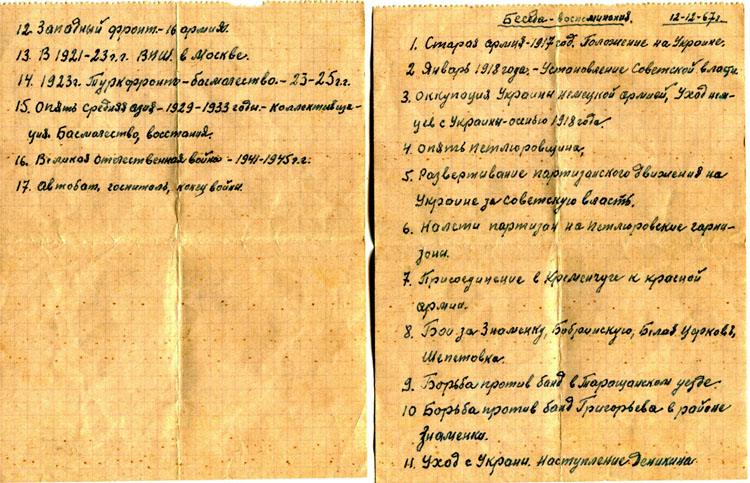 Беседа-воспоминания. 12-12-67г.
1. Старая армия-1917 год. Положение на Украине.
2 Январь 1918 года.-Установление Советской власти
3. Оккупация Украины немецкой армией, Уход нем-
цев с Украины-осенью 1918 года.
4. Опять Петлюровщина,
5. Развертывание партизанского движения на
Украине за Советскую власть.
6. Налеты партизан на Петлюровские гарни-
зоны.
7. Присоединение в Кременчуге к красной
армии.
8. Бои за Знаменку, Бобринскую, Белая Церковь,
Шепетовка.
9. Борьба против банд в Таращанском уезде.
10 Борьба против банд Григорьева в районе
Знаменки.
11. Уход с Украни. Наступление Деникина
12. Западный фронт.-16 армия.
13. В 1921-23 г.г. ВПШ в Москве.
14. 1923г. Туркфронт-басмачество.-23-25 г.г.
15. Опять Средняя азия-1929-1933 годы.-коллективиза-
ция. Басмачество, восстания.
16. Великая отечественная война-1941-1945 г.г.
17. Автобат, госпиталь, конец войны.